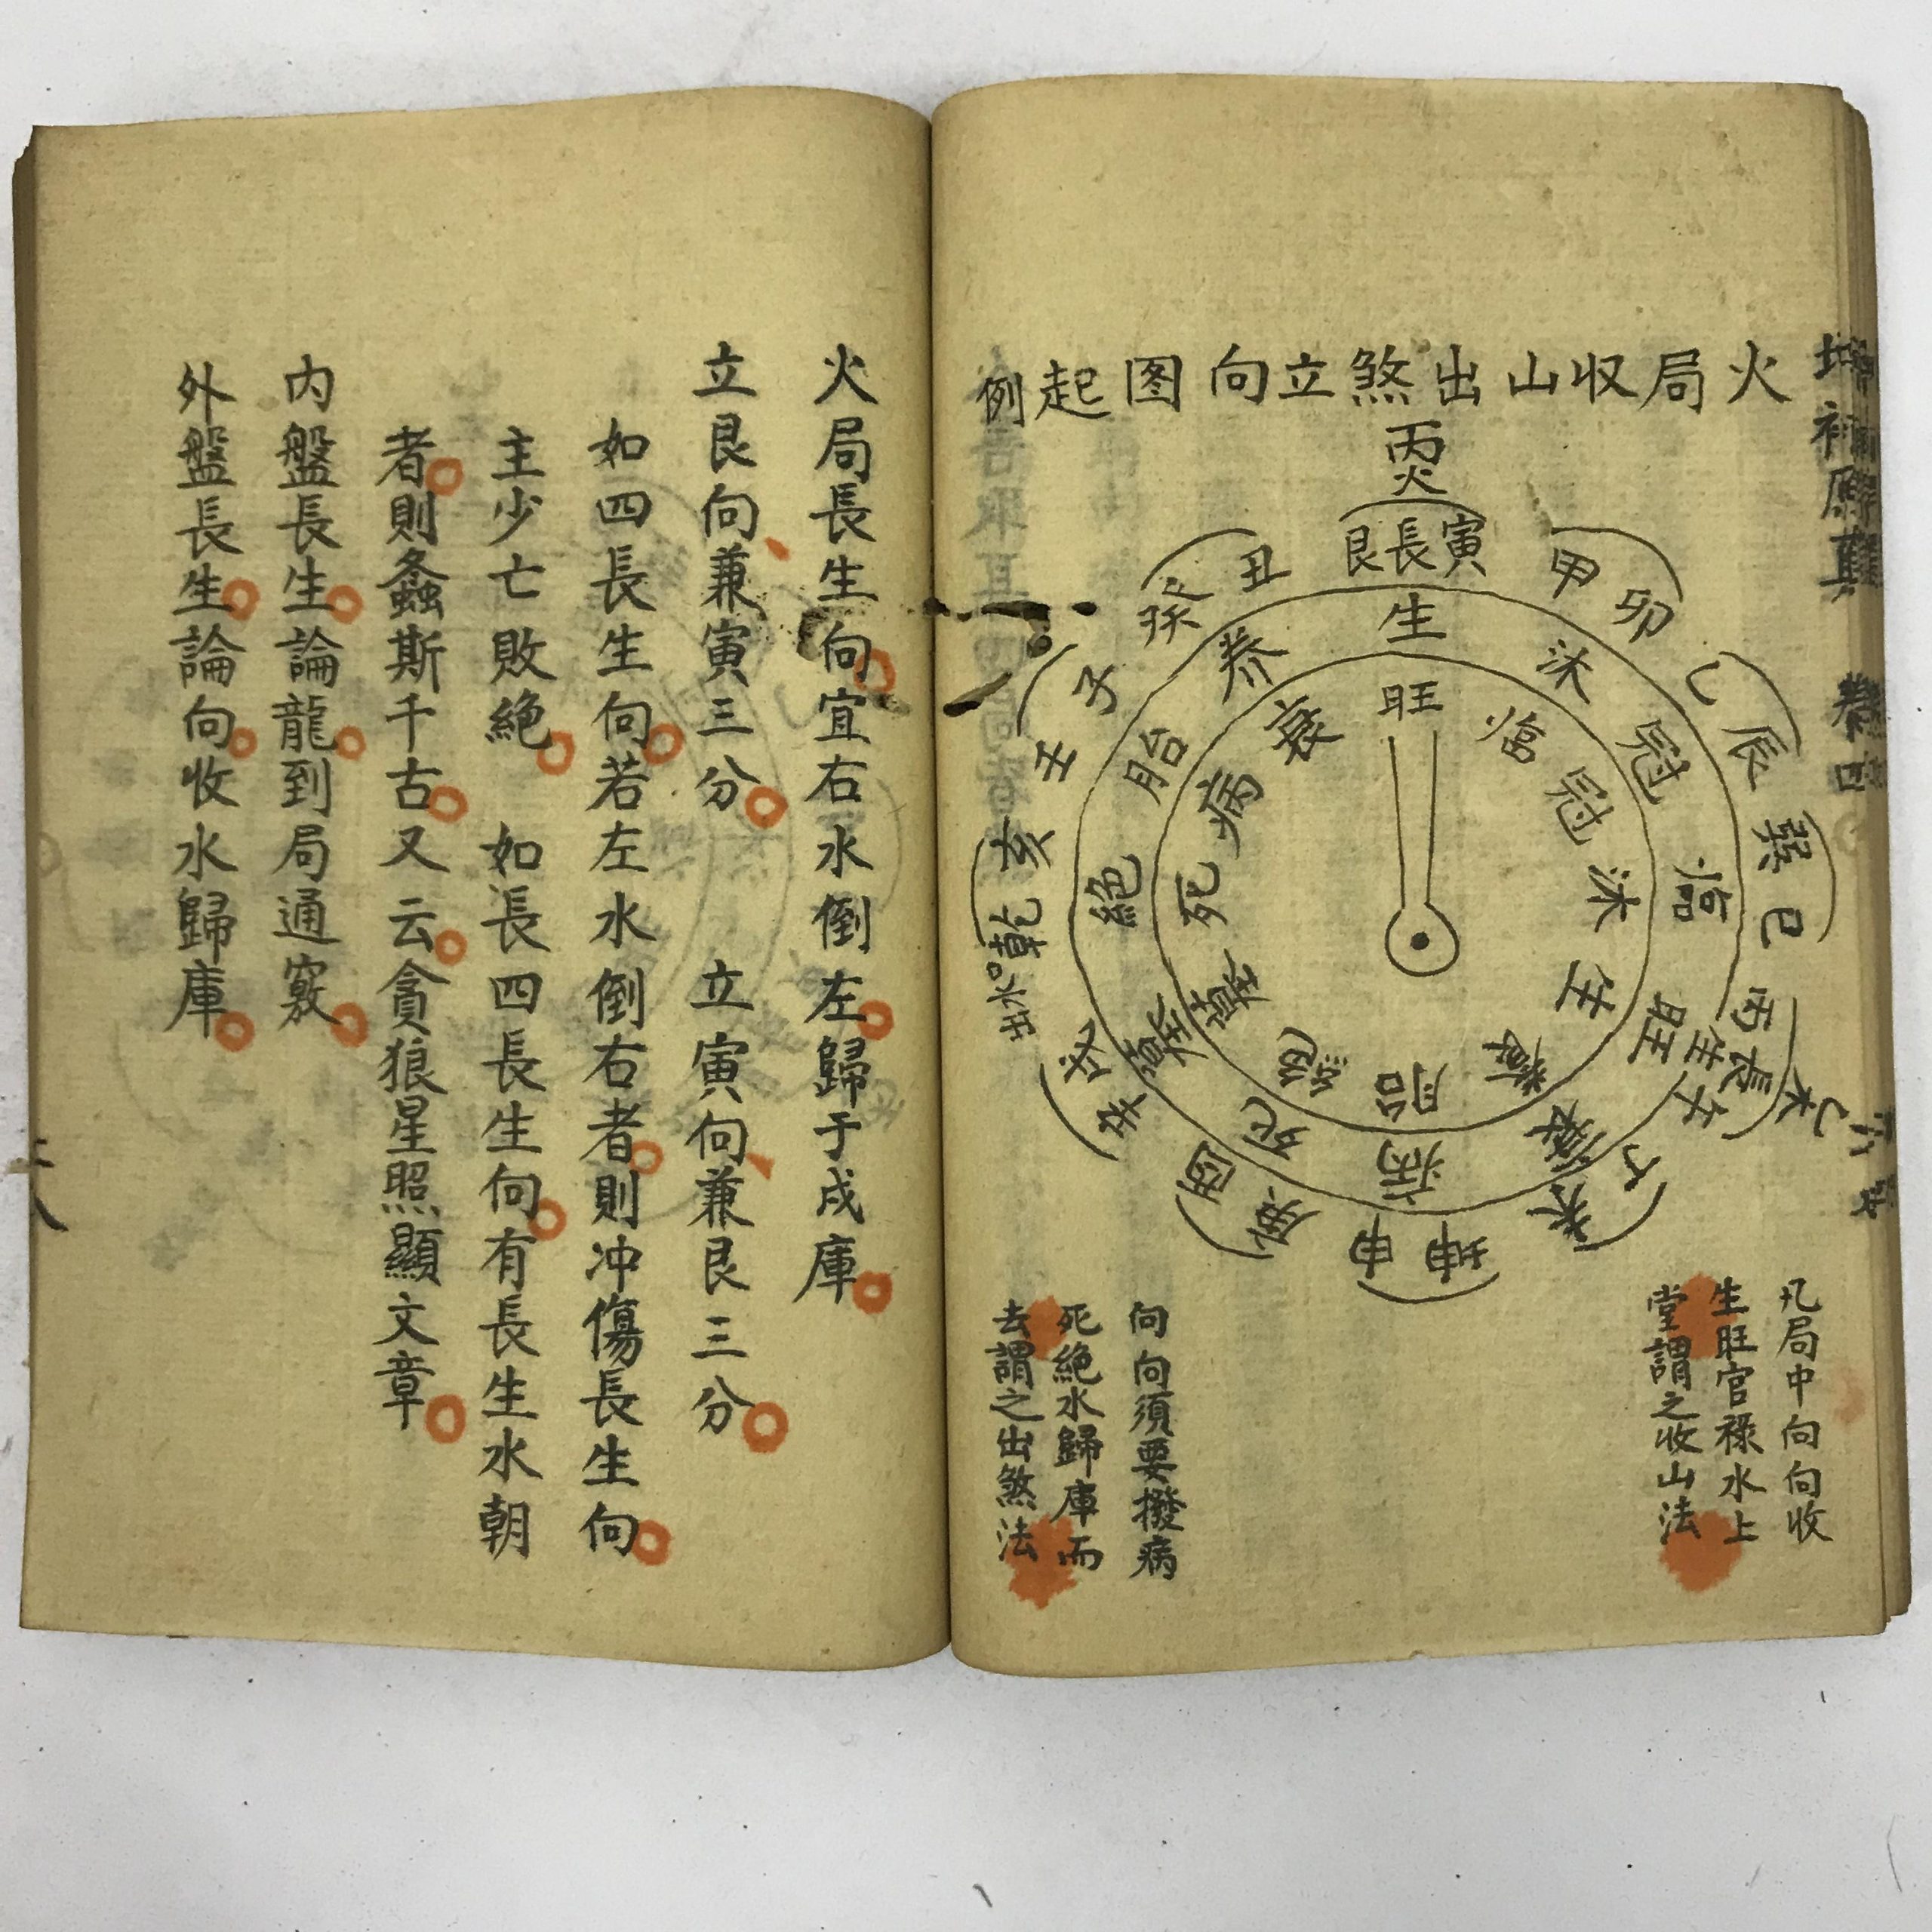 火局收山出煞立向图起例
丙火
艮長寅
甲卯
乙辰
巽巳
丙長生午
乙木
丁未
坤申
庚酉
辛戌
乾亥
出水口
壬子
癸丑
生
沐
冠
临
旺
衰
病
死
墓
絕
胎
养
旺
临
冠
沐
生
養
胎
絕
墓
死
病
衰
凡局中向向收
生旺官祿水上
堂謂之收山法
向向須要撥病
死絕水歸庫而
去謂之出煞法
卷四
火局長生向宜右水倒左歸于戌庫
立艮向兼寅三分 立寅向兼艮三分
如四長生向若左水倒右者則冲傷長生向
主少亡敗絕 如長四長生向有長生水朝
者則螽斯千古又云貪狼星照顯文章
内盤長生論龍到局通竅
外盤長生論向收水歸庫